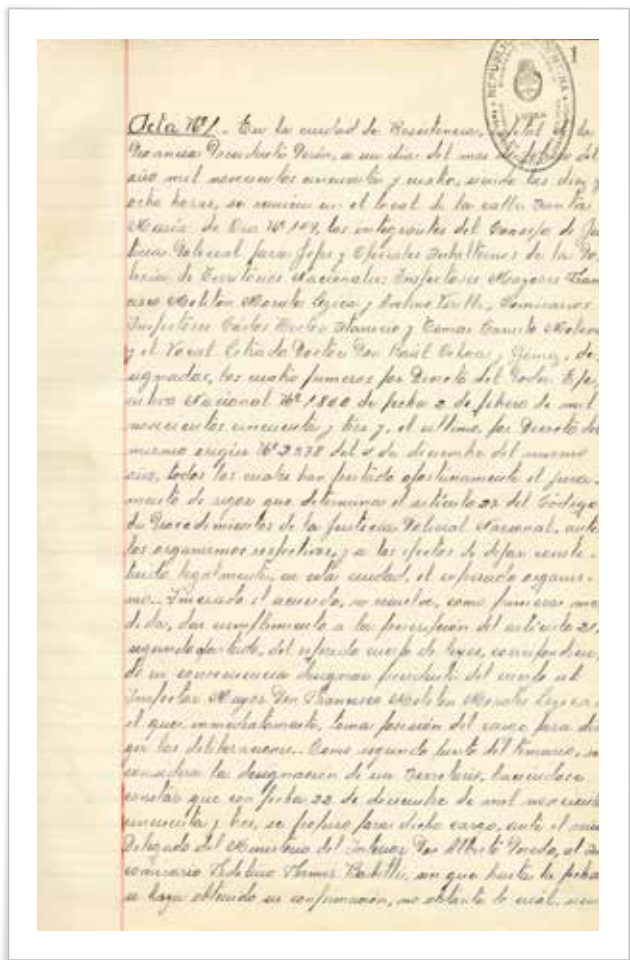 1
REPUBLICA ARGENTINA
Acta Nº 1. En la ciudad de Resistencia, capital de la
Provincia Presidente Perón, a un día del mes de febrero del
año mil novecientos cincuenta y cuatro, siendo las diez y
ocho horas, se reunen en el local de la calle Santa
María de Oro Nº 109, los integrantes del Consejo de Jus
ticia Policial para Jefes y Oficiales Subalternos de la Po
licía de Territorios Nacionales: Inspectores Mayores Fran
cisco Moliton Morales y Comisarios
Inspectores Carlos Hector y Tomas Molina
y el Vocal Letrado Doctor Don Raúl Ochoa y Gómez, de
signados, los cuatro primeros por Decreto del Poder Eje
cutivo Nacional Nº 1800 de fecha 2 de febrero de mil
novecientos cincuenta y tres y, el ultimo, por Decreto del
mismo origen Nº 2378 del de diciembre del mismo
año, todos los cuales han prestado oportunamente el jura
mento de rigor que determina el artículo 22 del Código
de Procedimientos de la Justicia Policial Nacional, ante
los organismos respectivos, y a los efectos de dejar consti
tuido legalmente, en esta ciudad, el expresado organis
mo. Iniciado el acuerdo, se resuelve, como primera me
dida, dar cumplimiento a la prescripción del artículo 21,
segundo apartado, del referido cuerpo de leyes, correspondien
do en consecuencia designar presidente del mismo al
Inspector Mayor Don Francisco Moliton Morales
el que, inmediatamente, toma posesión del cargo para diri
gir las deliberaciones. Como segundo punto del temario, se
considera la designación de un Secretario, haciéndose
constar que con fecha 22 de diciembre de mil novecientos
cincuenta y tres, se propuso para dicho cargo, ante el
Delegado del Ministerio del Interior Don Alberto al Sub
comisario sin que hasta la fecha
se haya obtenido su confirmación, no obstante lo cual,